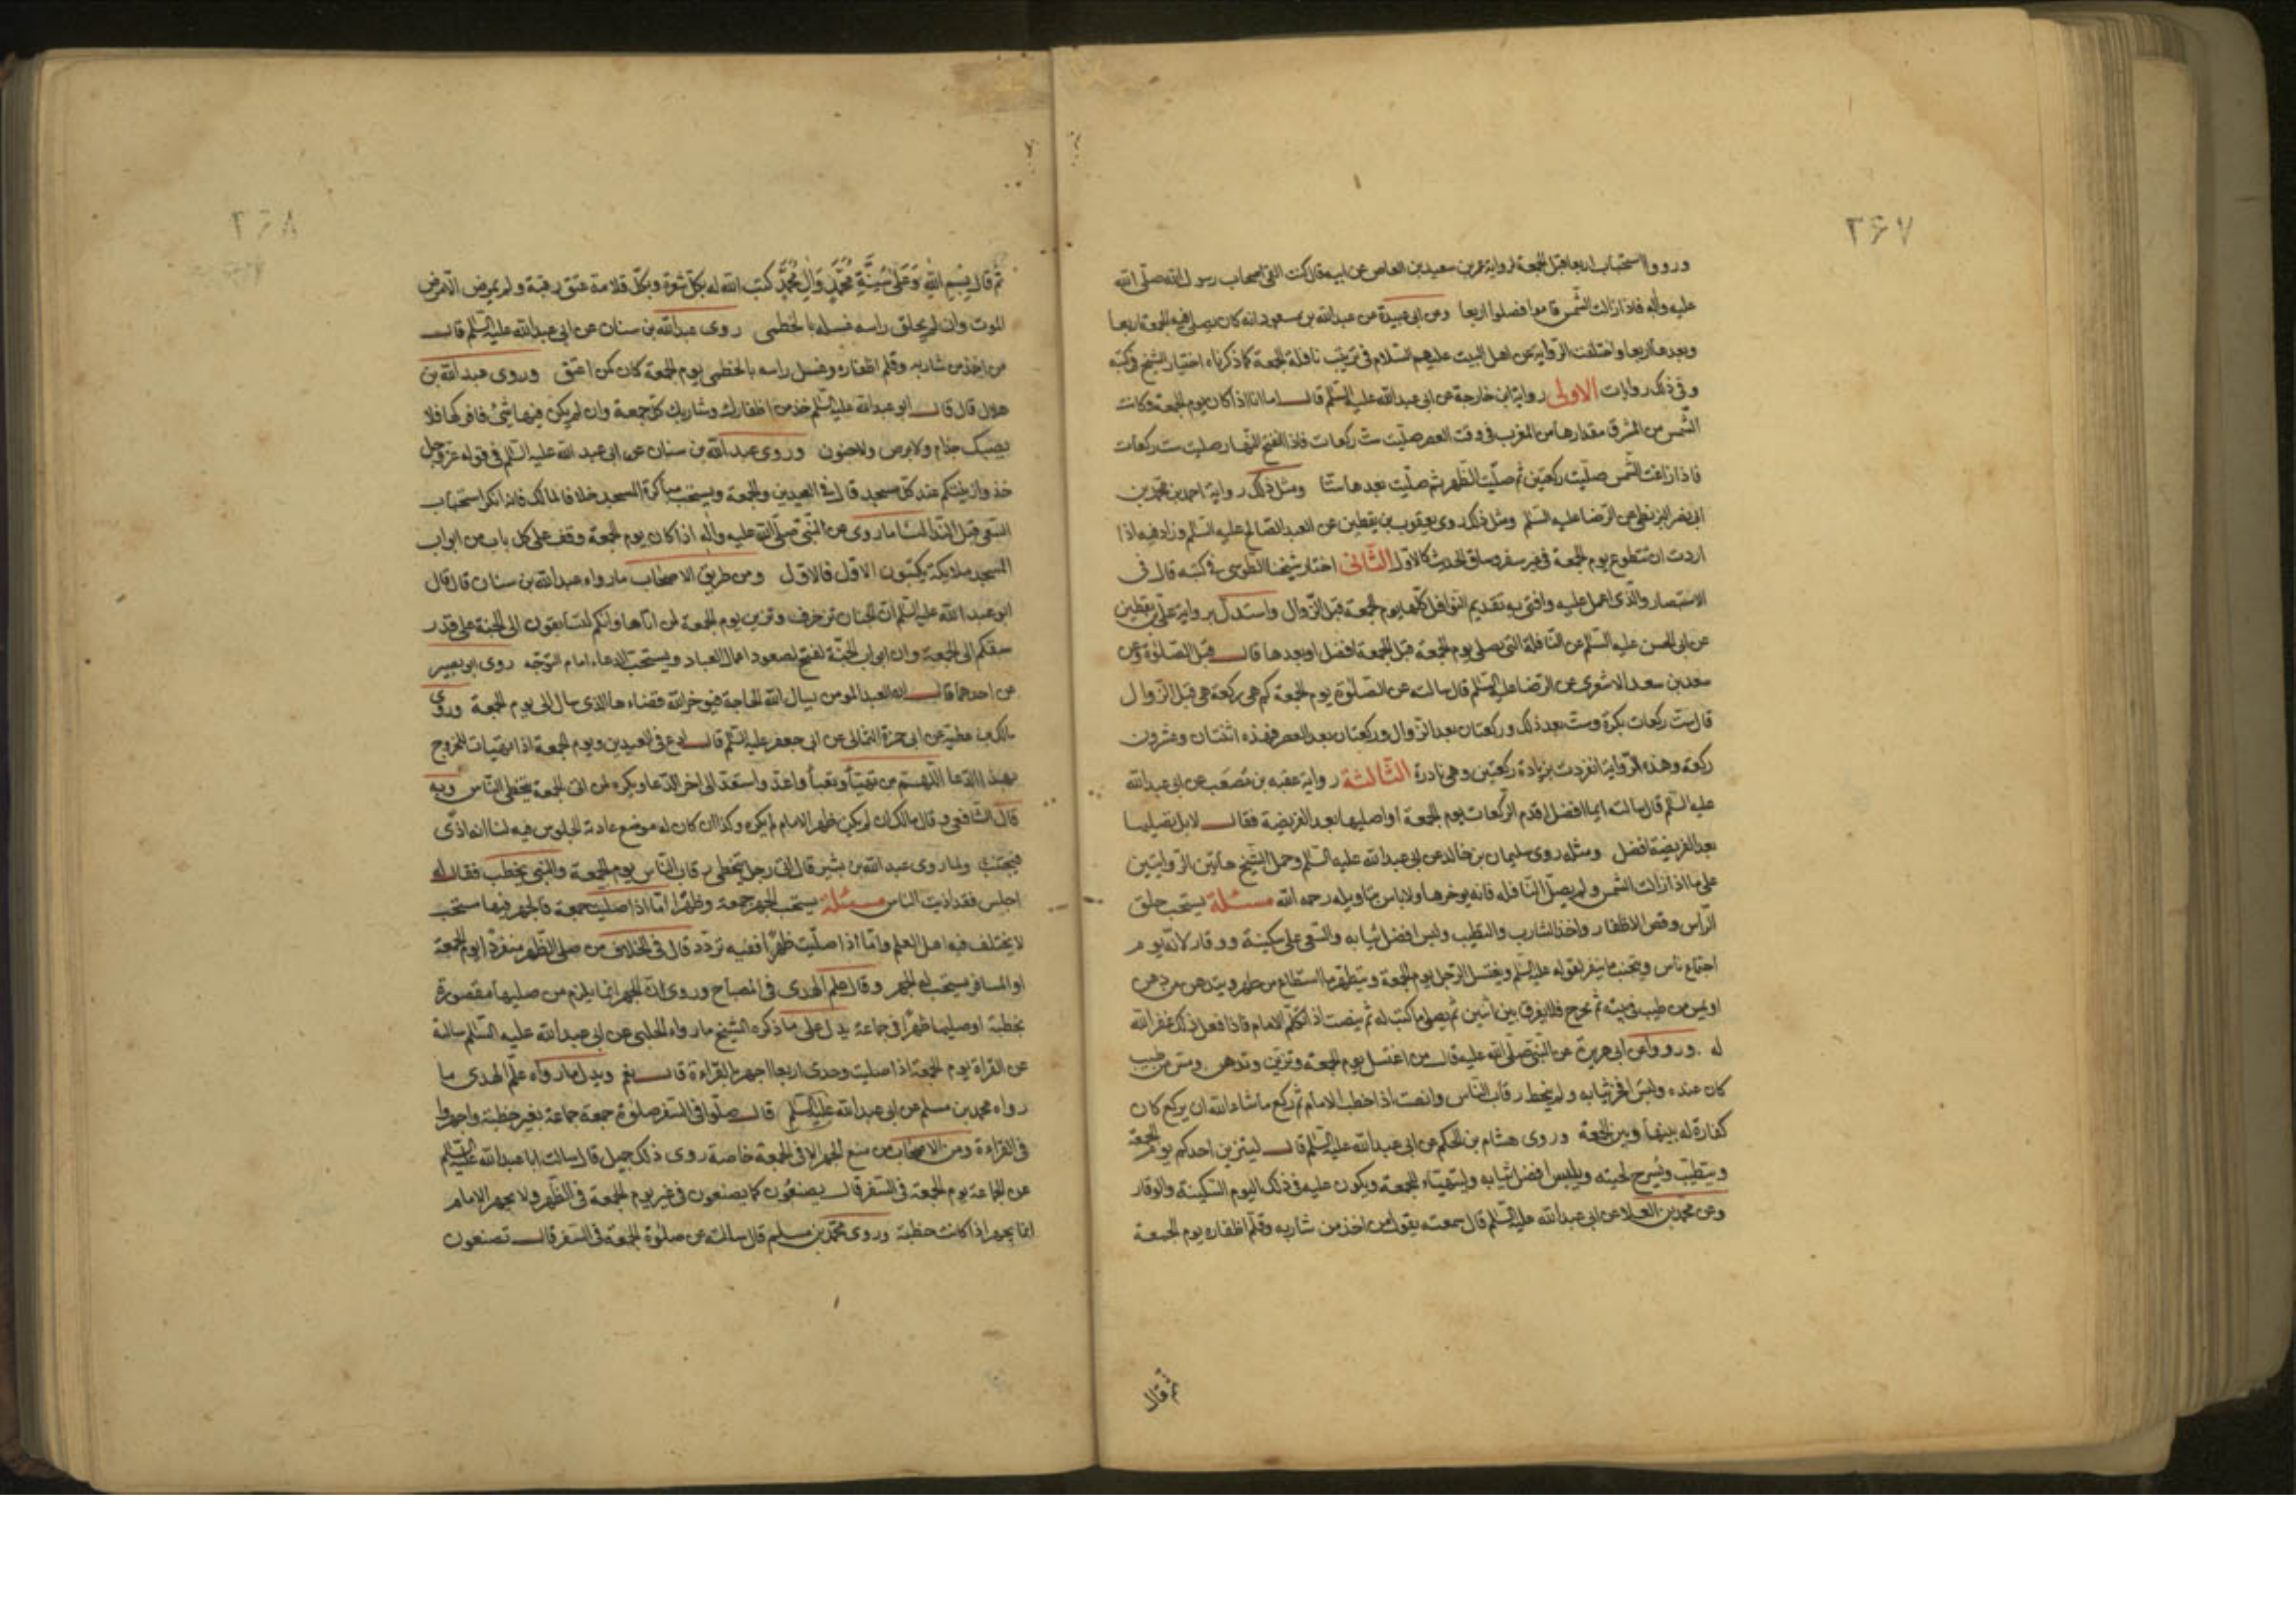 ۲۶۷
ورووا استحباب اربعا قبل الجمعة لرواية عمر بن سعيد بن العاص عن ابيه قال كنت القى اصحاب رسول الله صلى الله
عليه واله فاذا زالت الشمس قاموا فصلوا اربعا ومن ابى عبيدة عن عبدالله بن مسعود انه كان يصلى قبل الجمعة اربعا
وبعدها اربعا واختلفت الرواية عن اهل البيت عليهم السلام فى ترتيب نافلة الجمعة كما ذكرناه اختيار الشيخ فى كتبه
وفى ذلك روايات الاولى رواية ابن خارجة عن ابى عبدالله عليه السلم قال اما انا اذا كان يوم الجمعة وكانت
الشمس من المشرق مقدارها من المغرب فى وقت العصر صليت ست ركعات فاذا انتفخ النهار صليت ست ركعات
فاذا زاغت الشمس صليت ركعتين ثم صليت الظهر ثم صليت بعدها ستا ومثل ذلك رواية احمد بن محمد بن
ابى نصر البزنطى عن الرضا عليه السلم ومثل ذلك روى يعقوب بن يقطين عن العبد الصالح عليه السلم وزاد فيه اذا
اردت ان تتطوع يوم الجمعة فى غير سفر وساق الحديث كالاول الثانى اختار شيخنا الطوسى فى كتبه قال فى
الاستبصار والذى اعمل عليه وافتى به تقديم النوافل كلها يوم الجمعة قبل الزوال واستدل برواية على بن يقطين
عن ابى الحسن عليه السلم عن النافلة التى يصلى يوم الجمعة قبل الجمعة افضل او بعدها قال قبل الصلوة وعن
سعد بن سعد الاشعرى عن الرضا عليه السلم قال سالته عن الصلوة يوم الجمعة كم هى ركعة هى قبل الزوال
قال ست ركعات بكرة وست بعد ذلك وركعتان بعد الزوال وركعتان بعد العصر فهذه اثنتان وعشرون
ركعة وهذه الرواية انفردت بزيادة ركعتين وهى نادرة الثالثة رواية عقبه بن مصعب عن ابى عبدالله
عليه السلم قال سالته ايما افضل اقدم الركعات يوم الجمعة او اصليها بعد الفريضة فقال لا بل تصليها
بعد الفريضة افضل ومثله روى سليمان بن خالد عن ابى عبدالله عليه السلم وحمل الشيخ هاتين الروايتين
على ما اذا زالت الشمس ولم يصل النافله فانه يوخرها ولا باس بتاويله رحمه الله مسئلة يستحب حلق
الراس وقص الاظفار واخذ الشارب والتطيب ولبس افضل ثيابه والسعى على سكينة ووقار لانه يوم
اجتماع ناس ويجتنب ما ينفر لقوله عليه السلم ويغتسل الرجل يوم الجمعة ويتطهر ما استطاع من طهر ويتدهن من دهن
او يمس من طيب بيته ثم يخرج فلا يفرق بين اثنين ثم يصلى ما كتب له ثم ينصت اذا تكلم الامام فاذا فعل ذلك غفر الله
له ورووا عن ابى هريرة عن النبى صلى الله عليه قال من اغتسل يوم الجمعة وتزين وتدهن ومس من طيب
كان عنده ولبس افخر ثيابه ولم يتخط رقاب الناس وانصت اذا خطب الامام ثم ركع ما شاء الله ان يركع كان
كفارة له بينها وبين الجمعة وروى هشام بن الحكم عن ابى عبدالله عليه السلم قال ليتزين احدكم يوم الجمعة
ويتطيب ويسرح لحيته ويلبس افضل ثيابه وليتهيأ للجمعة ويكون عليه فى ذلك اليوم السكينة والوقار
وعن محمد بن العلا عن ابى عبدالله عليه السلم قال سمعته يقول من اخذ من شاربه وقلم اظفاره يوم الجمعة
ثم قال
۲۶۸
ثم قال بسم الله وعلى سنة محمد وال محمد كتب الله له بكل شعرة وبكل قلامة عتق رقبة ولم يمرض الا مرض
الموت وان لم يحلق راسه غسله بالخطمى روى عبدالله بن سنان عن ابى عبدالله عليه السلم قال
من اخذ من شاربه وقلم اظفاره وغسل راسه بالخطمى يوم الجمعة كان كمن اعتق وروى عبدالله بن
هلال قال قال ابو عبدالله عليه السلم خذ من اظفارك وشاربك كل جمعة وان لم يكن فيها شئ فافركها فلا
يصيبك جذام ولا برص ولا جنون وروى عبدالله بن سنان عن ابى عبدالله عليه السلم فى قوله عز وجل
خذوا زينتكم عند كل مسجد قال فى العيدين والجمعة ويستحب مباكرة المسجد خلافا لمالك فانه انكر استحباب
السعى قبل الندا لنا ما روى عن النبى صلى الله عليه واله اذا كان يوم الجمعة وقف على كل باب من ابواب
المسجد ملايكة يكتبون الاول فالاول ومن طريق الاصحاب ما رواه عبدالله بن سنان قال قال
ابو عبدالله عليه السلم ان الجنان تزخرف وتزين يوم الجمعة لمن اتاها وانكم لتسابقون الى الجنة على قدر
سبقكم الى الجمعة وان ابواب الجنة لتفتح لصعود اعمال العباد ويستحب الدعاء امام التوجه روى ابو بصير
عن احدهما قال ان العبد المومن يسال الله الحاجة فيوخر الله قضاءها الذى سال الى يوم الجمعة وروى
مالك بن عطية عن ابى حمزة الثمالى عن ابى جعفر عليه السلم قال ادع فى العيدين ويوم الجمعة اذا تهيات للخروج
بهذا الدعا اللهم من تهيأ وتعبأ واعد واستعد الى اخر الدعا ويكره لمن اتى الجمعة يتخطى الناس وبه
قال الشافعى وقال مالك ان لم يكن ظهر الامام لم يكره وكذا ان كان له موضع عادته الجلوس فيه لنا انه اذى
فيجتنب ولما روى عبدالله بن بشير قال اتى رجل يتخطى رقاب الناس يوم الجمعة والنبى يخطب فقال له
اجلس فقد اذيت الناس مسئلة يستحب الجهر جمعة وظهرا اما اذا صليت جمعة فالجهر فيها مستحب
لا يختلف فيه اهل العلم واما اذا صليت ظهرا ففيه تردد قال فى الخلاف من صلى الظهر منفردا يوم الجمعة
او المسافر يستحب له الجهر وقال علم الهدى فى المصباح وروى ان الجهر انما يلزم من صليها مقصورة
بخطبة او صليها ظهرا فى جماعة يدل على ما ذكره الشيخ ما رواه الحلبى عن ابى عبدالله عليه السلم سالته
عن القراة يوم الجمعة اذا صليت وحدى اربعا اجهر بالقراءة قال نعم ويدل ما رواه علم الهدى ما
رواه محمد بن مسلم عن ابى عبدالله عليه السلم قال صلوا فى السفر صلوة جمعة جماعة بغير خطبة واجهروا
فى القراءة ومن الاصحاب من منع الجهر الا فى الجمعة خاصة روى ذلك جميل قال سالت ابا عبدالله عليه السلم
عن الجماعة يوم الجمعة فى السفر قال يصنعون كما يصنعون فى غير يوم الجمعة فى الظهر ولا يجهر الامام
انما يجهر اذا كانت خطبة وروى محمد بن مسلم قال سالته عن صلوة الجمعة فى السفر قال تصنعون